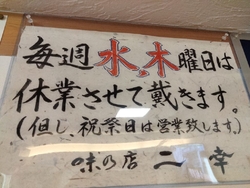 毎週水.木曜日は
休業させて戴きます。
(但し、祝祭日は営業致します。)
味乃店 二幸